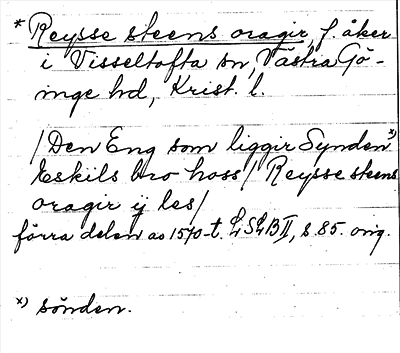 * Reysse steens oragir, f. åker
i Visseltofta sn, Västra Gö-
inge hd, Krist. l.
/Den Eng som liggir Synden x)
Eskils bro hoss/ Reysse steens
oragir ij les/
förra delen av 1570-t. LSLB II, s. 85. orig.
x) sönden.